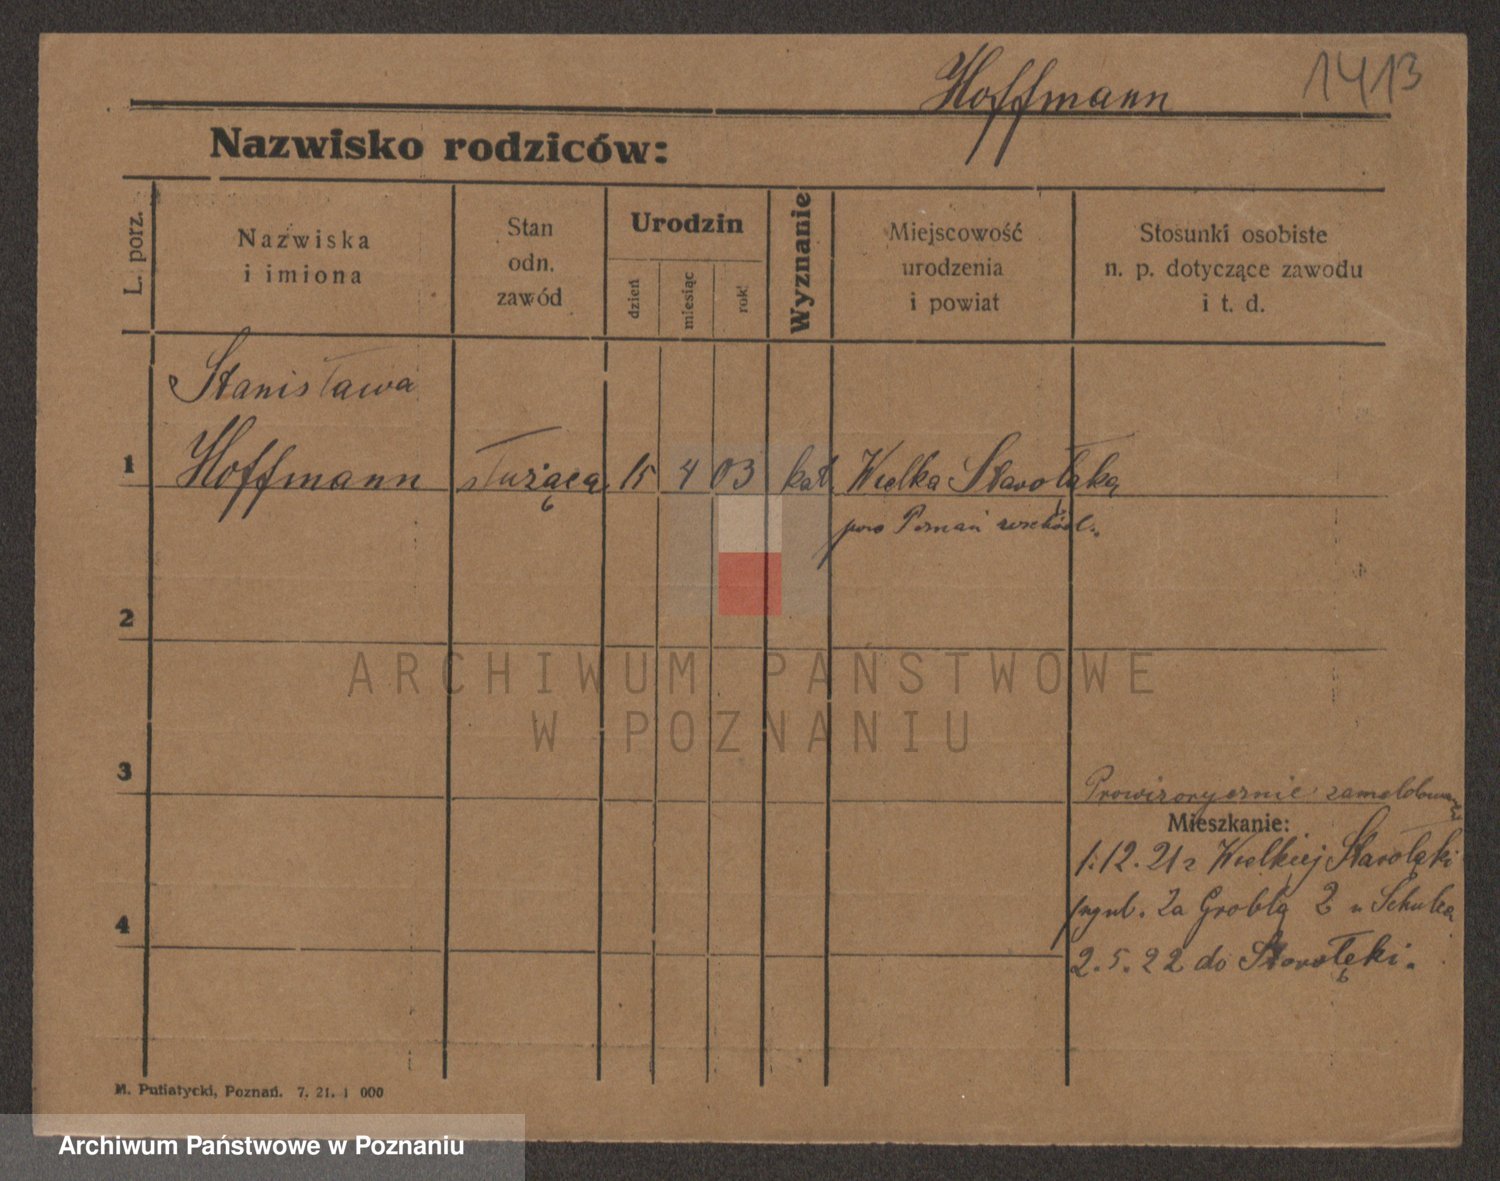 Hoffmann
1413
Nazwisko rodziców:
L. porz.
Nazwiska
i imiona
Stan
odn.
zawód
Urodzin
dzień
miesiąc
rok
Wyznanie
Miejscowość
urodzenia
i powiat
Stosunki osobiste
n. p. dotyczące zawodu
i t. d.
Stanisława
1 Hoffmann służąca 15 4 03 kat Wielka Starołęka
pow Poznań wschód.
2
ARCHIWUM PAŃSTWOWE
W POZNANIU
3
Prowizorycznie zameldowana
Mieszkanie:
1.12.21 z Wielkiej Starołęki
4
Za Groblą 2 u Schulca
2.5.22 do Starołęki.
M. Putiatycki, Poznań. 7. 21. 1 000
Archiwum Państwowe w Poznaniu